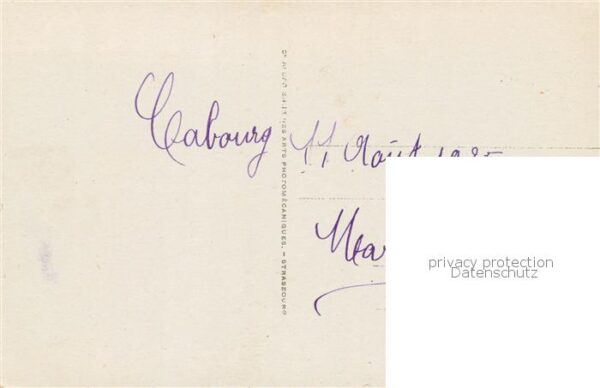 Cabourg 11 Août 1925
Ma
ARTS PHOTOMÉCANIQUES. — STRASBOURG
privacy protection
Datenschutz